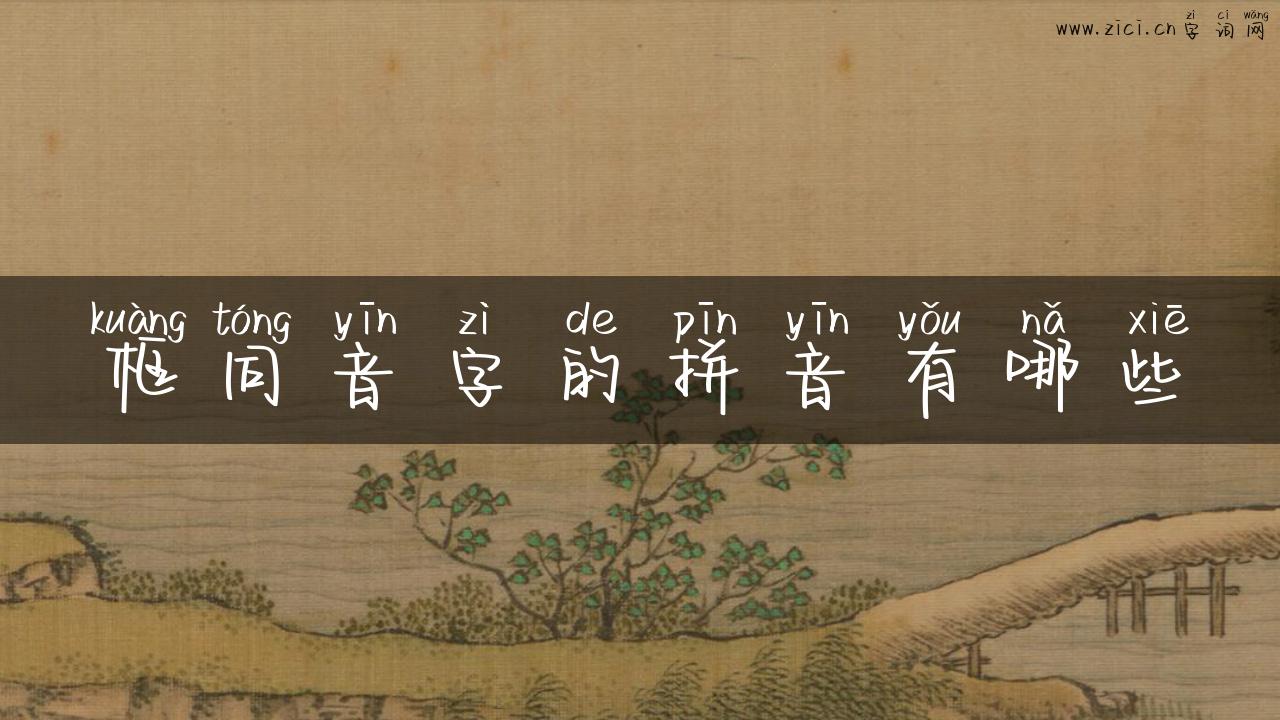 zì cí wǎng
www.zici.cn 字词网
kuàng tóng yīn zì de pīn yīn yǒu nǎ xiē
框同音字的拼音有哪些